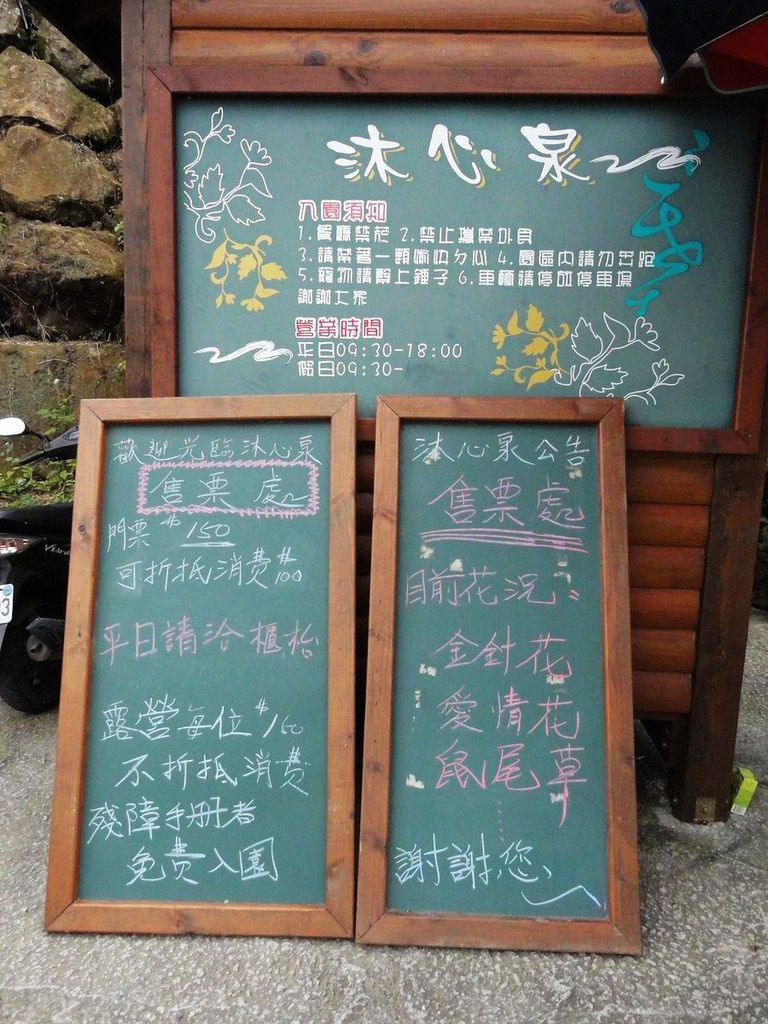 沐心泉
入園須知
1.餐廳禁菸 2.禁止攜帶外食
3.請帶著一顆愉快ㄉ心 4.園區內請勿奔跑
5.寵物請繫上鍊子 6.車輛請停放停車場
謝謝大家
營業時間
平日09:30-18:00
假日09:30-
歡迎光臨沐心泉
售票處
門票$150
可折抵消費$100
平日請洽櫃枱
露營每位$160
不折抵消費
殘障手冊者
免費入園
沐心泉公告
售票處
目前花況:
金針花
愛情花
鼠尾草
謝謝您